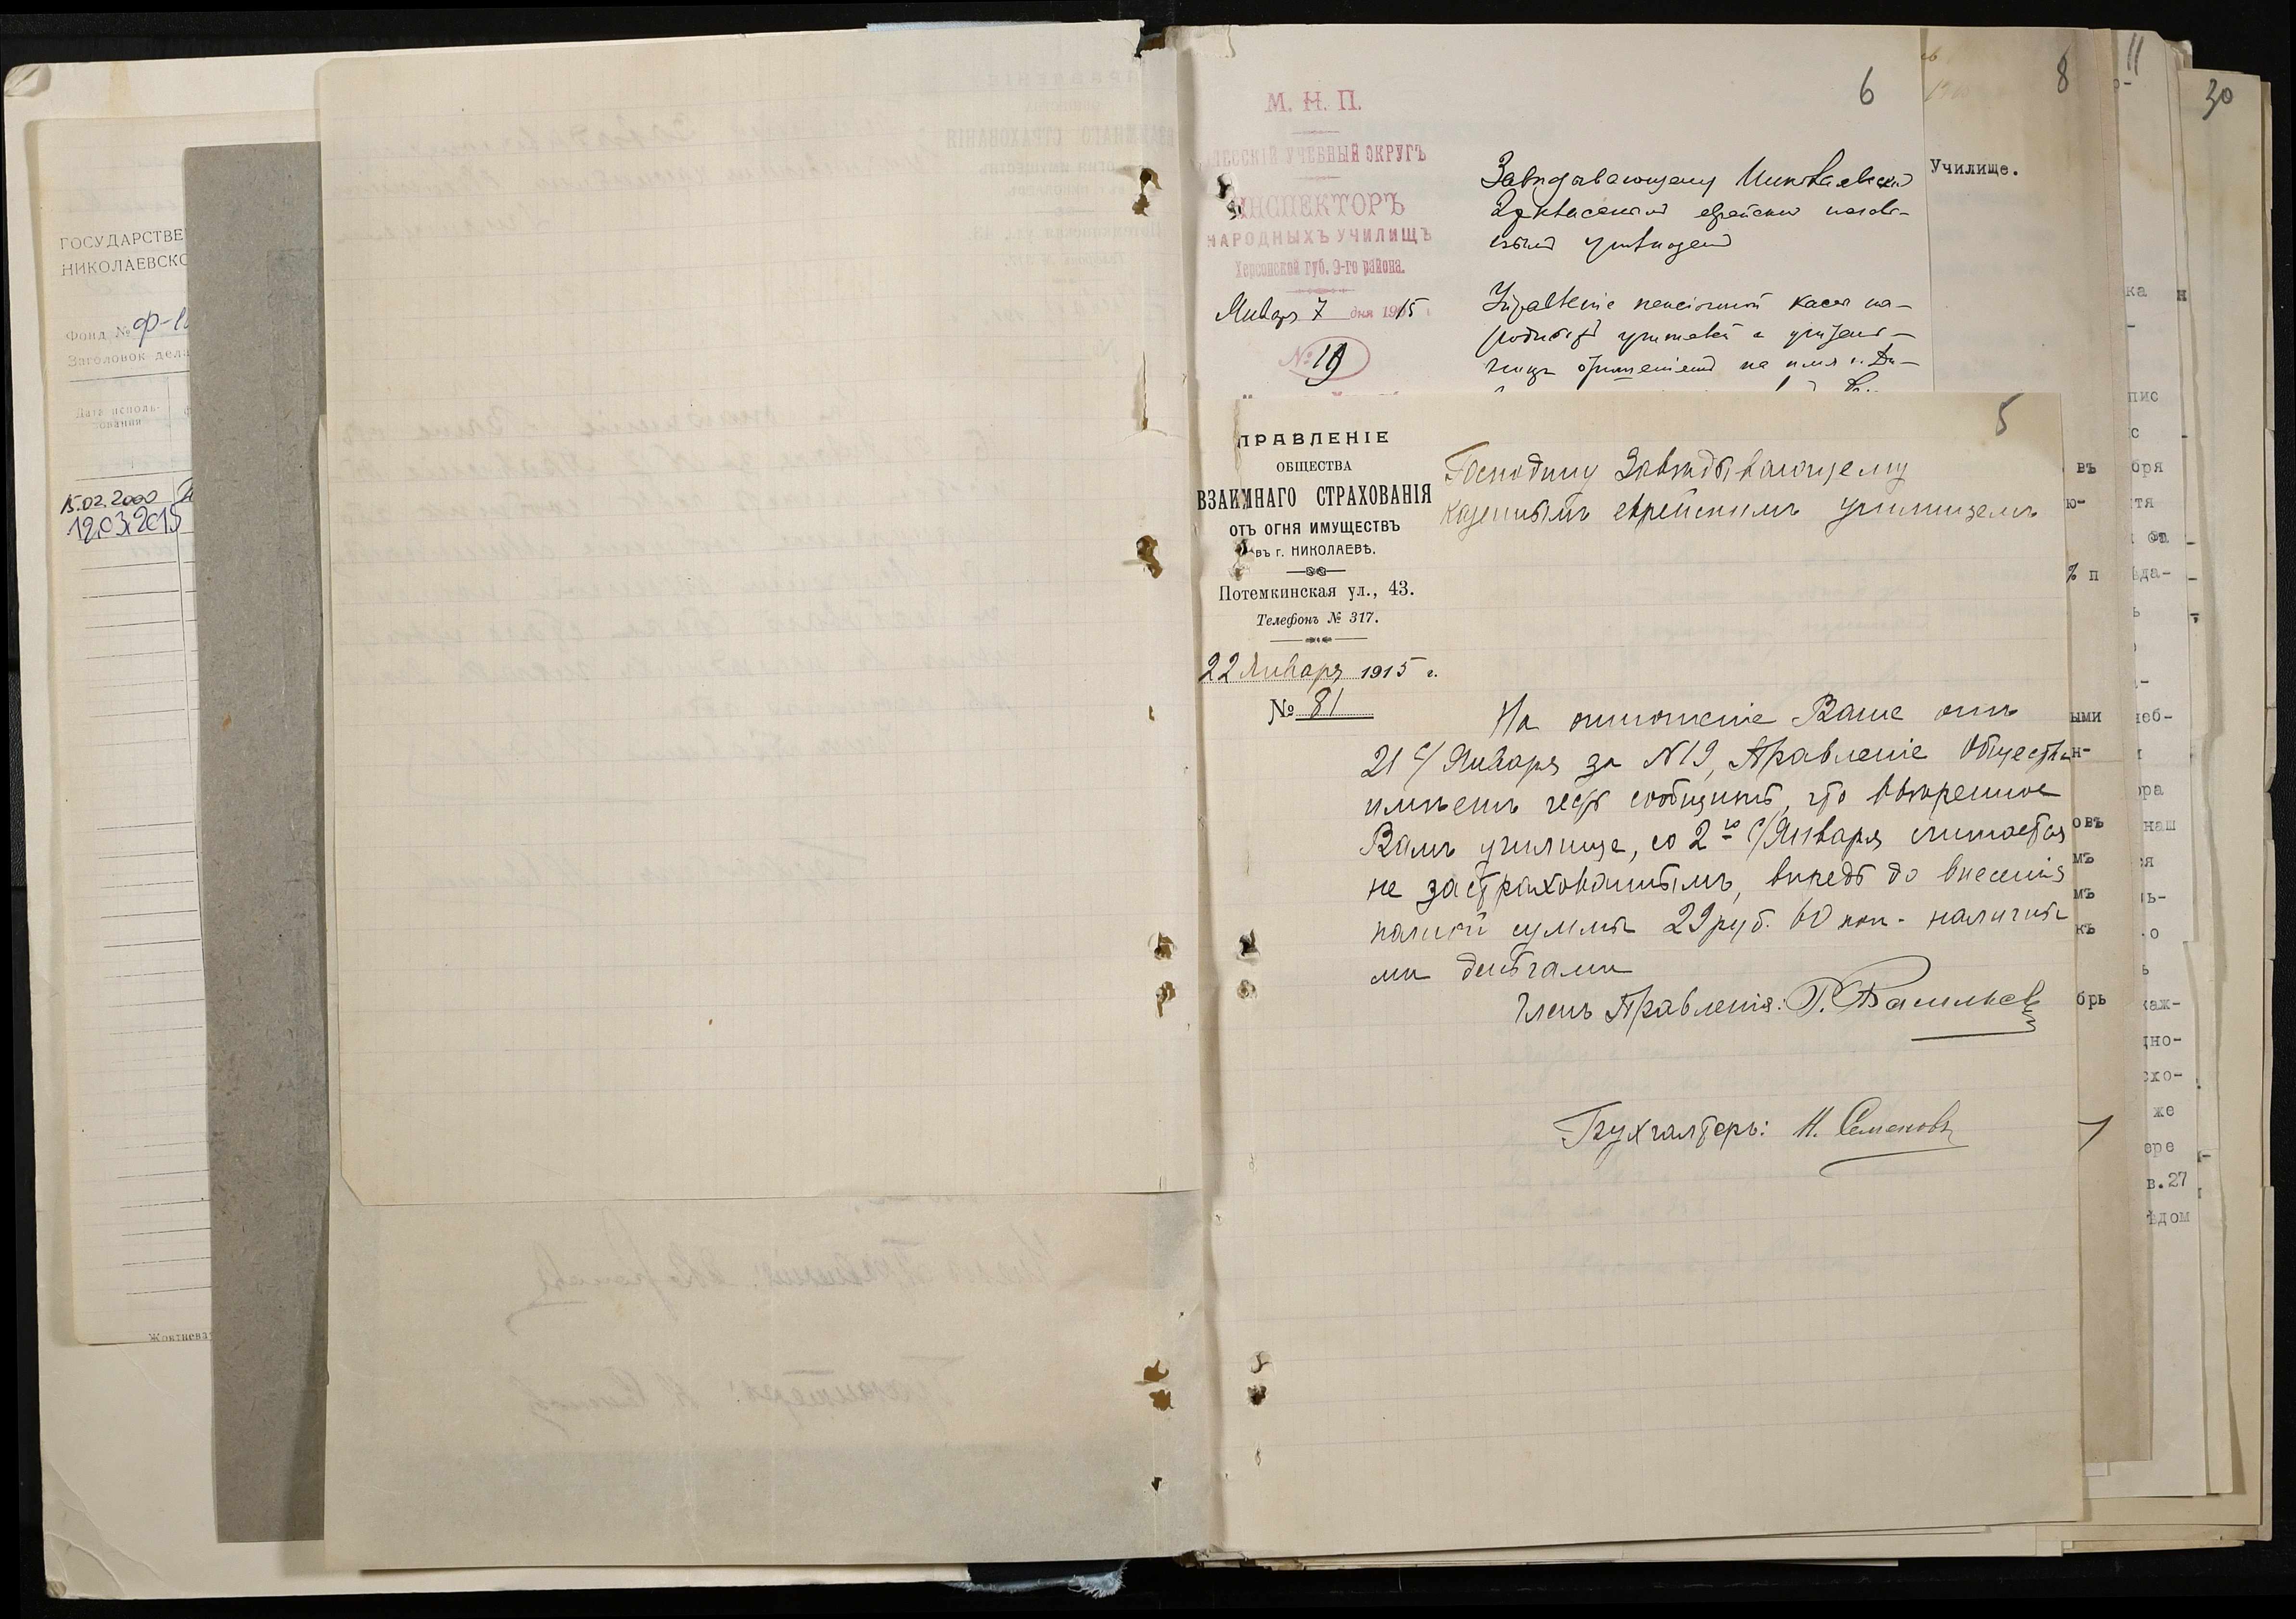 ГОСУДАРСТВЕ
НИКОЛАЕВСКО
Фонд № Ф-1
Заголовок дела
Дата исполь-
зования
15.02.2000
12.03.2015
6
8
11
30
М. Н. П.
ОДЕССКІЙ УЧЕБНЫЙ ОКРУГЪ
ИНСПЕКТОРЪ
НАРОДНЫХЪ УЧИЛИЩЪ
Херсонской губ. 9-го района.
Января 7 дня 1915
№ 19
Завѣдывающему Николаевскимъ
2хкласснымъ еврейскимъ
Училище.
Управленіе пенсіонной кассы на-
родныхъ учителей и учитель-
ницъ на имя г. Ди-
5
ПРАВЛЕНІЕ
ОБЩЕСТВА
ВЗАИМНАГО СТРАХОВАНІЯ
ОТЪ ОГНЯ ИМУЩЕСТВЪ
въ г. НИКОЛАЕВѢ.
Потемкинская ул., 43.
Телефонъ № 317.
22 Января 1915 г.
№ 81
Господину Завѣдывающему
казеннымъ еврейскимъ училищемъ
На отношеніе Ваше отъ
21 с/ Января за N19, Правленіе Общества
имѣетъ честь сообщить, что ввѣренное
Вамъ училище, со 2го с/Января считается
не застрахованнымъ, впредь до внесенія
полной суммы 29 руб. 60 коп. наличны
ми деньгами
Членъ Правленія: Р. Васильев
Бухгалтеръ: Н. Семеновъ
въ
ю-
% п
ыми
н-
овъ
мъ
мъ
къ
брь
ка
пис
с
бря
тя
да-
еб-
ора
наш
ся
ь-
о
каж-
дно-
схо-
же
ере
в.27
ѣдом